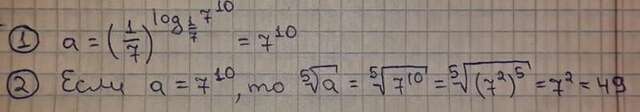 ① a = (1/7)^(log_(1/7) 7^10) = 7^10
② Если a = 7^10, то ⁵√a = ⁵√(7^10) = ⁵√((7^2)^5) = 7^2 = 49